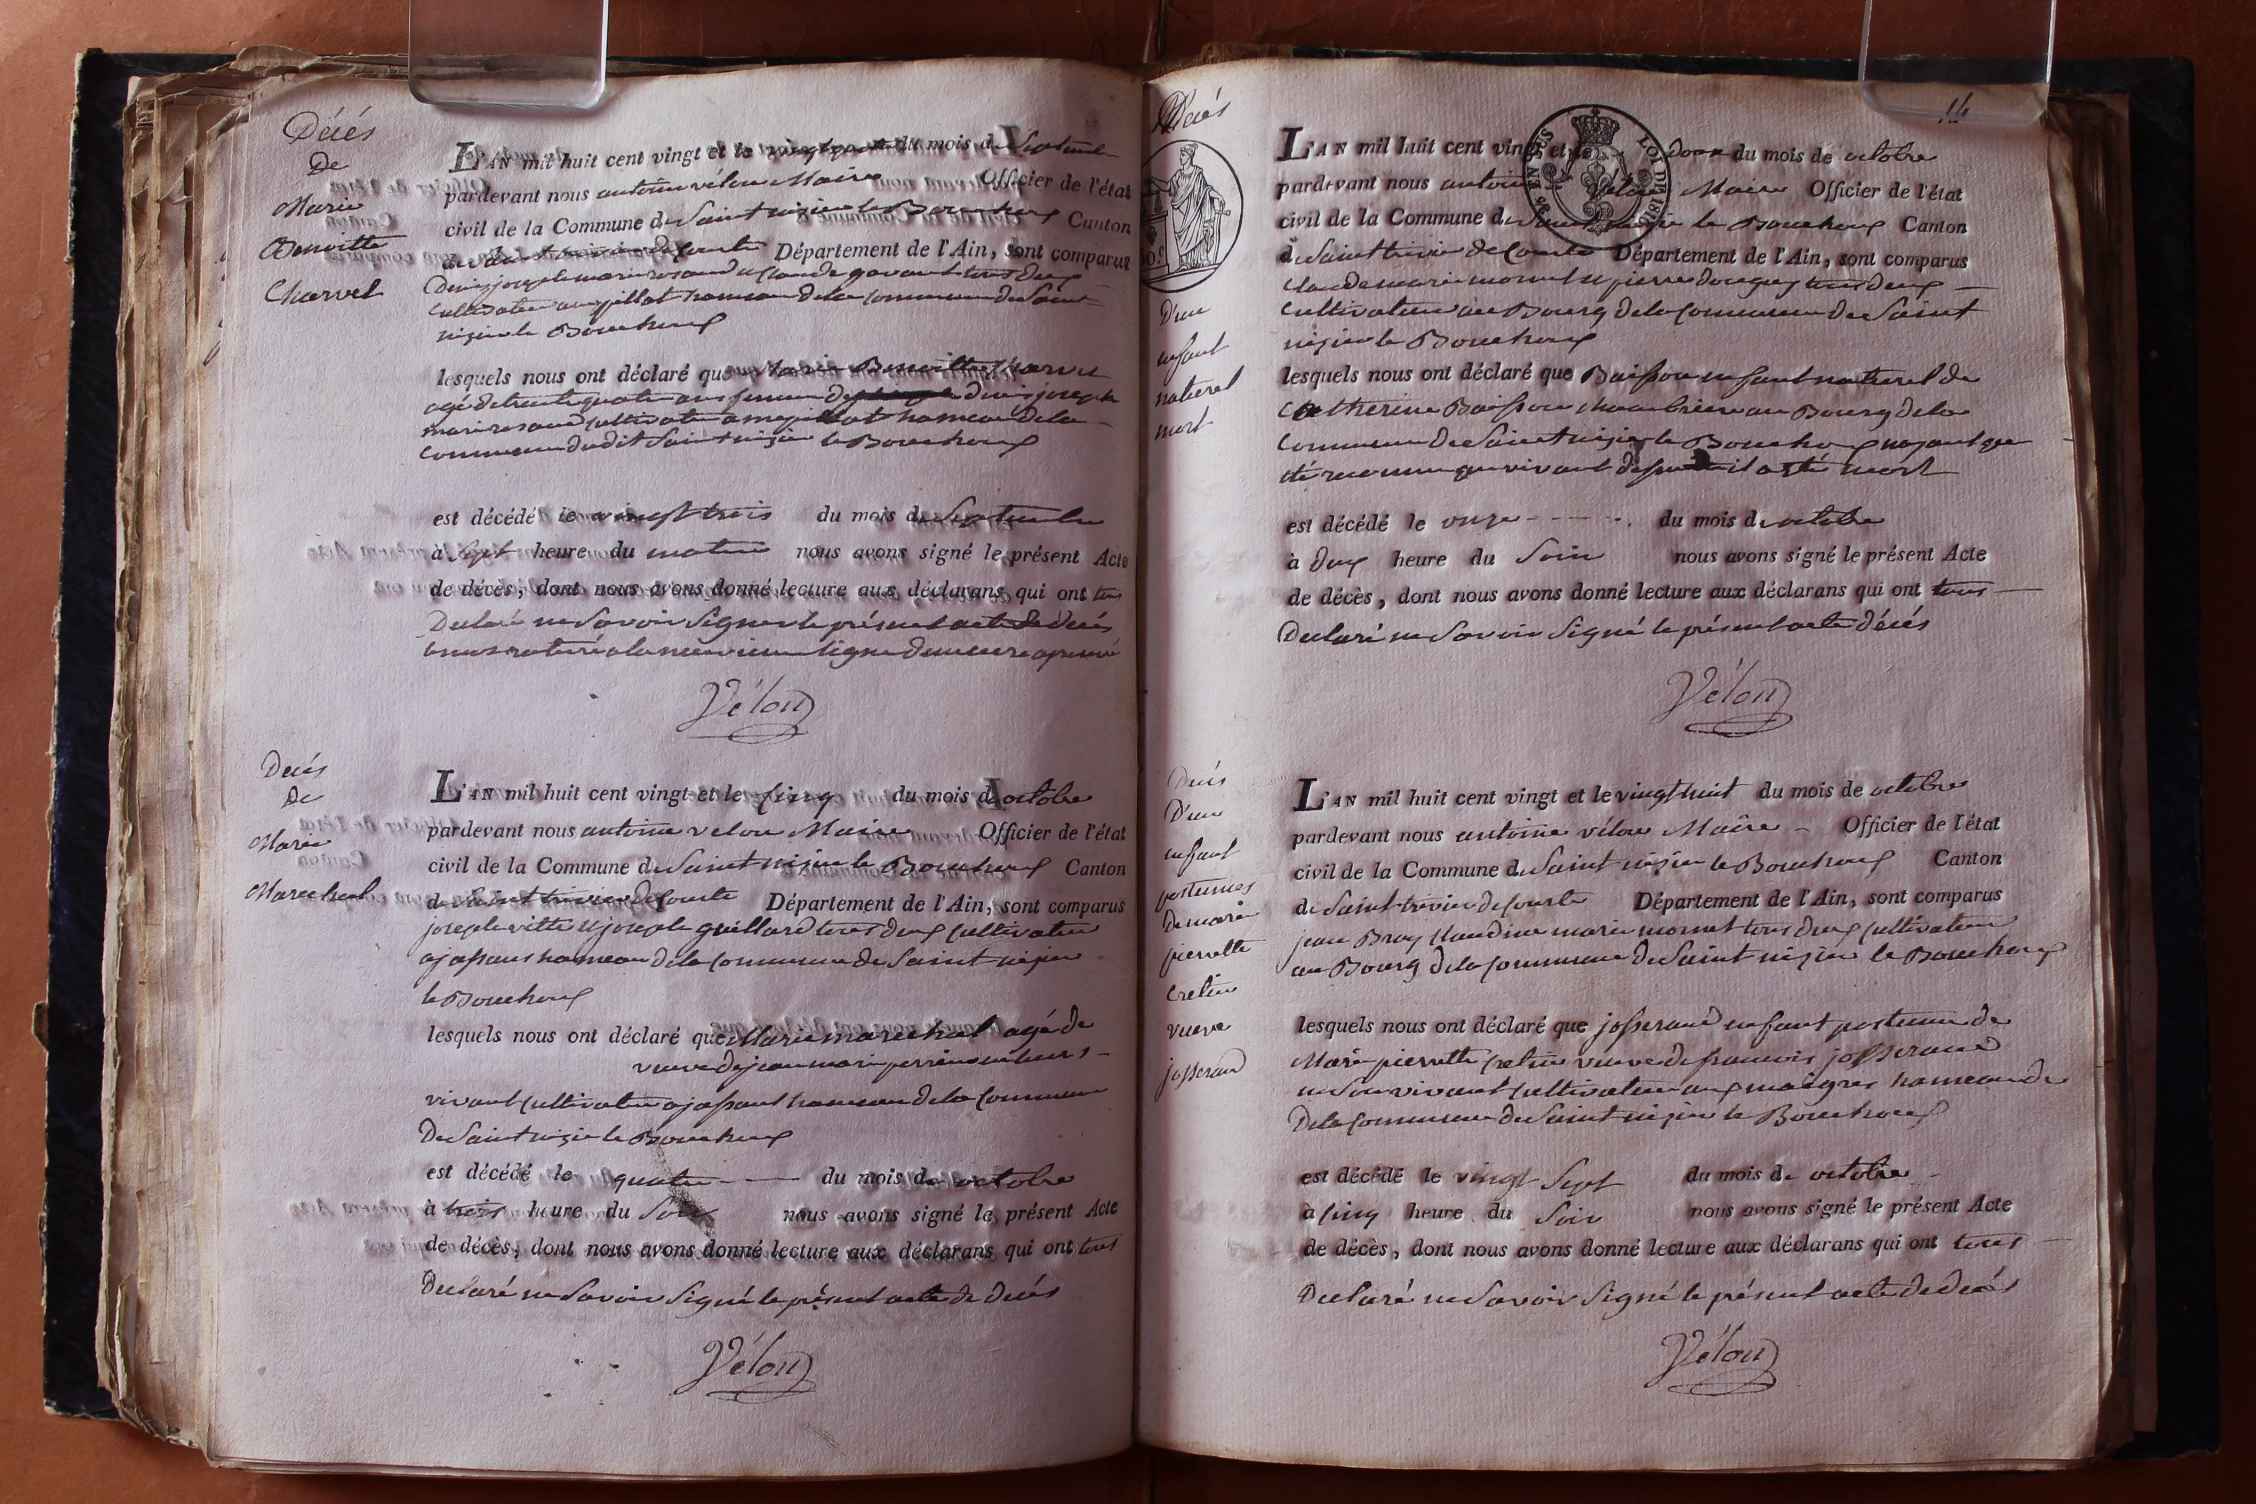 Décés
De
Marie
Benoitte
Charvet
L'AN mil huit cent vingt et le vingt quatre du mois de Septembre
pardevant nous antoine vélon Maire Officier de l'état
civil de la Commune de Saint nizier le Bouchoux Canton
de Saint trivier de Courte Département de l'Ain, sont comparus
Denis joseph marie et Claude gavant tous deux
Cultivateur hameau de la Commune de Saint
nizier le Bouchoux
lesquels nous ont déclaré que Marie Benoitte Charvet
agé de trente quatre ans femme de denis joseph
marie cultivateur hameau de la
Commune dudit Saint nizier le Bouchoux
est décédé le vingt trois du mois de Septembre
à Sept heure du matin nous avons signé le présent Acte
de décès, dont nous avons donné lecture aux déclarans qui ont tous
Declaré ne Savoir Signer le présent acte de décés
ligne
Vélon
Decés
De
Marie
Marechal
L'AN mil huit cent vingt et le cinq du mois de octobre
pardevant nous antoine velon Maire Officier de l'état
civil de la Commune de Saint nizier le Bouchoux Canton
de Saint trivier de Courte Département de l'Ain, sont comparus
joseph vitte et joseph guillard tous deux Cultivateur
a jassans hameau de la Commune de Saint nizier
le Bouchoux
lesquels nous ont déclaré que Marie marechal agé de
veuve de jean marie
vivant Cultivateur a jassans hameau de la Commune
De Saint nizier le Bouchoux
est décédé le quatre du mois de octobre
à trois heure du Soir nous avons signé le présent Acte
de décès, dont nous avons donné lecture aux déclarans qui ont tous
Declaré ne Savoir Signé le présent acte de decés
Vélon
14
TIMBRE EN SUS
LOI DE 1816
Decés
D'un
enfant
naturel
mort
L'AN mil huit cent vingt et le douze du mois de octobre
pardevant nous antoine vélon Maire Officier de l'état
civil de la Commune de Saint nizier le Bouchoux Canton
de Saint trivier de Courte Département de l'Ain, sont comparus
Claude marie monet et pierre tous deux
Cultivateur au Bourg de la Commune de Saint
nizier le Bouchoux
lesquels nous ont déclaré que Baisson enfant naturel de
Catherine Baisson chambrière au Bourg de la
Commune de Saint nizier le Bouchoux nayant que
été reconnu il a été mort
est décédé le onze du mois de octobre
à deux heure du Soir nous avons signé le présent Acte
de décès, dont nous avons donné lecture aux déclarans qui ont tous
Declaré ne Savoir Signé le présent acte décés
Vélon
Decés
D'un
enfant
postumes
de marie
pierrette
Cretin
veuve
josserand
L'AN mil huit cent vingt et le vingt huit du mois de octobre
pardevant nous antoine vélon Maire Officier de l'état
civil de la Commune de Saint nizier le Bouchoux Canton
de Saint trivier de Courte Département de l'Ain, sont comparus
jean Bray Claudine marie monet tous deux Cultivateur
au Bourg de la Commune de Saint nizier le Bouchoux
lesquels nous ont déclaré que josserand enfant postume de
Marie pierrette Cretin veuve de francois josserand
en Son vivant Cultivateur aux maigres hameau de
De la Commune de Saint nizier le Bouchoux
est décédé le vingt Sept du mois de octobre
à Cinq heure du Soir nous avons signé le présent Acte
de décès, dont nous avons donné lecture aux déclarans qui ont tous
Declaré ne Savoir Signé le présent acte de decés
Vélon